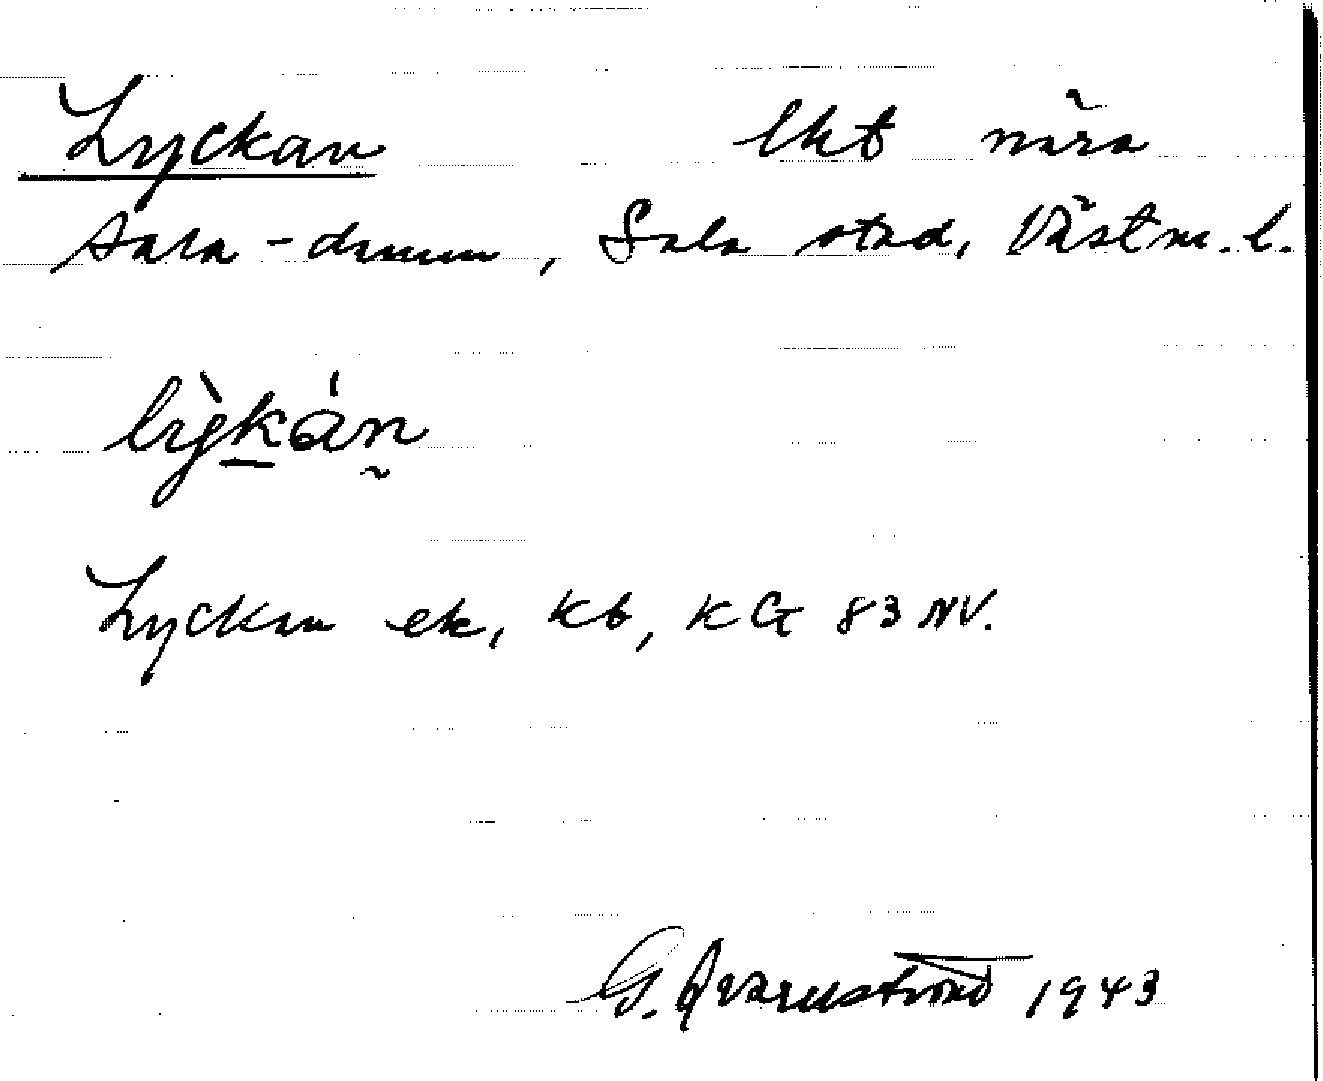 Lyckan lht nära
Sara-damm, Sala stad, Västm. l.
lỳkán
Lyckan ek, kb, KG 83 NV.
G. Qvarnström 1943